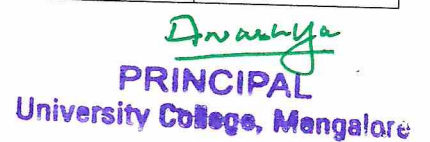 PRINCIPAL
University College, Mangalore